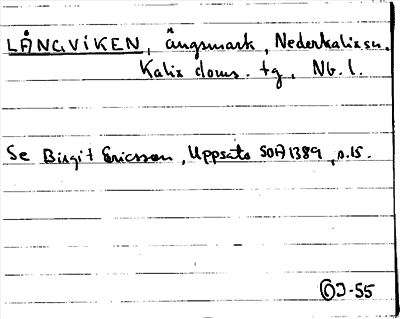 LÅNGVIKEN, ängsmark, Nederkalix sn.
Kalix doms. tg., Nb. l.
Se Birgit Ericsson, Uppsats SOA 1389, s.15.
J-55